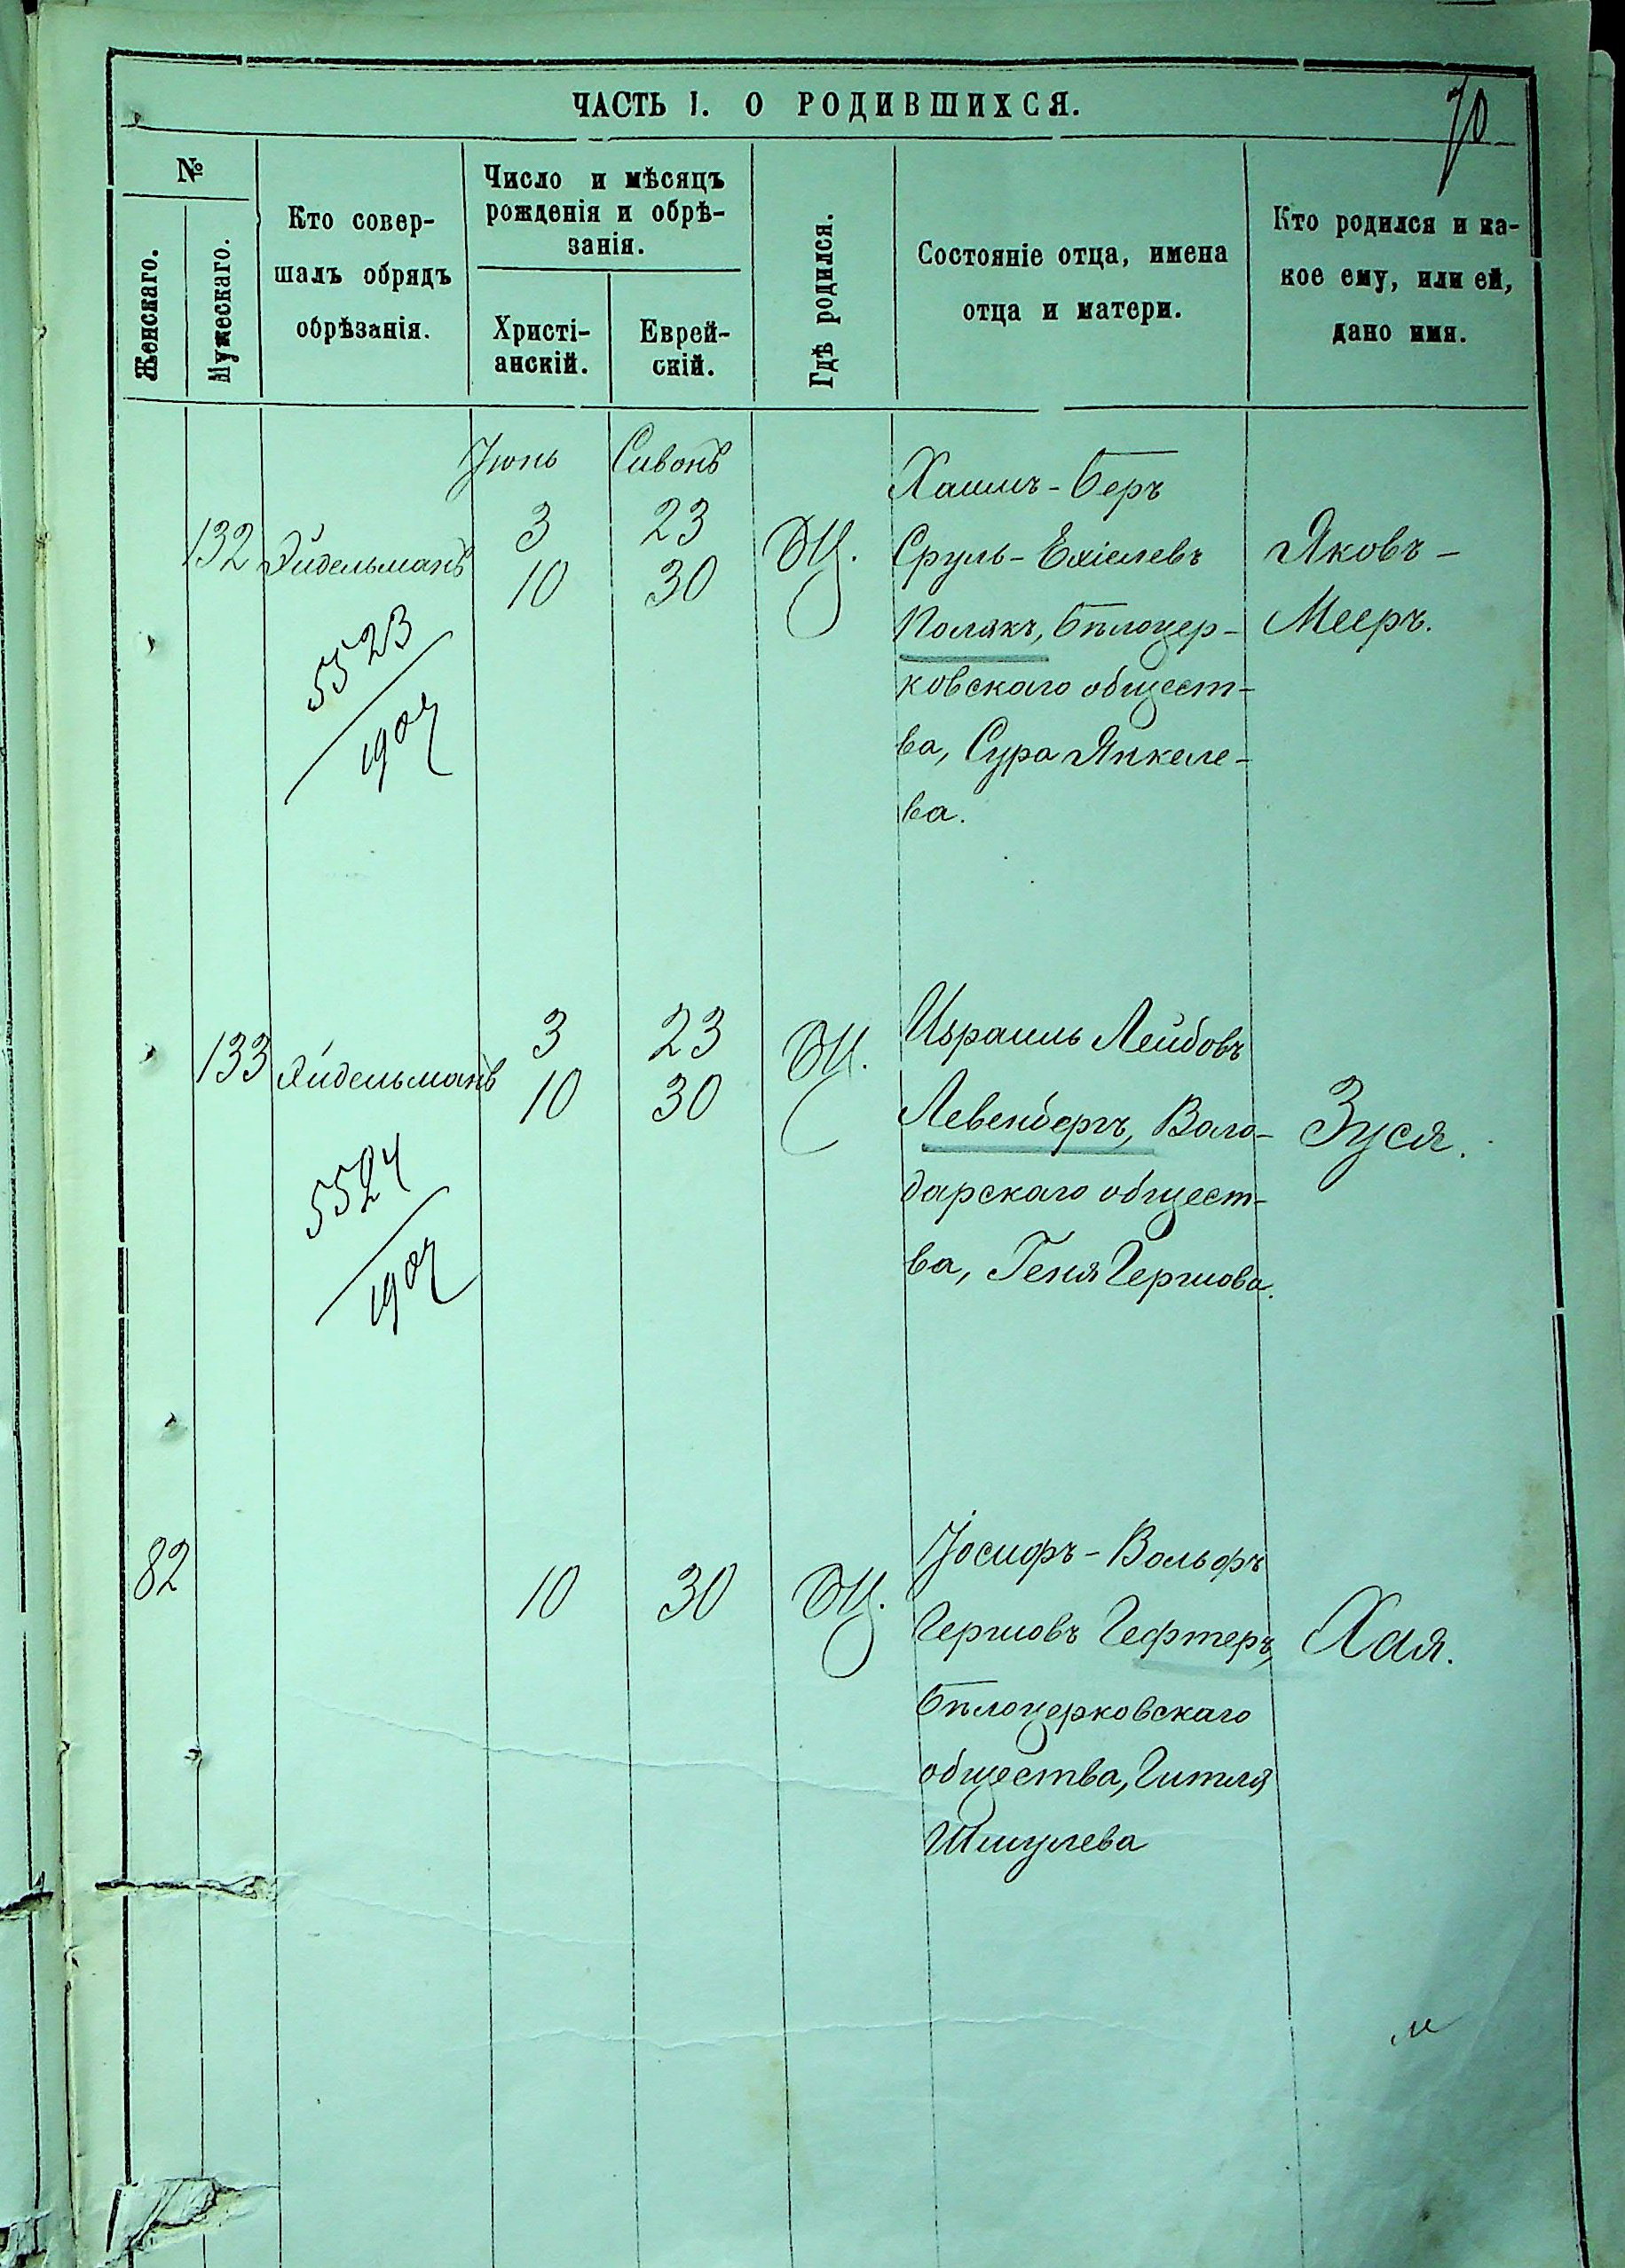 ЧАСТЬ I. О РОДИВШИХСЯ.
70
№
Женскаго.
Мужескаго.
Кто совер-
шалъ обрядъ
обрѣзанія.
Число и мѣсяцъ
рожденія и обрѣ-
занія.
Христі-
анскій.
Еврей-
скій.
Гдѣ родился.
Состояніе отца, имена
отца и матери.
Кто родился и ка-
кое ему, или ей,
дано имя.
Іюнь Сивонъ
132 Эйдельманъ
3 23
10 30
БЦ.
Хаимъ-Беръ
Сруль-Ехіелевъ
Полякъ, Бѣлоцер-
ковскаго общест-
ва, Сура Янкеле-
ва.
Яковъ-
Мееръ.
5523
1907
133 Эйдельманъ
3 23
10 30
БЦ.
Израиль Лейбовъ
Левенбергъ, Воло-
дарскаго общест-
ва, Геня Гершова.
Зуся.
5524
1907
82
10 30
БЦ.
Іосифъ-Вольфъ
Гершовъ Гефтеръ,
Бѣлоцерковскаго
общества, Гитля
Шмулева
Хая.